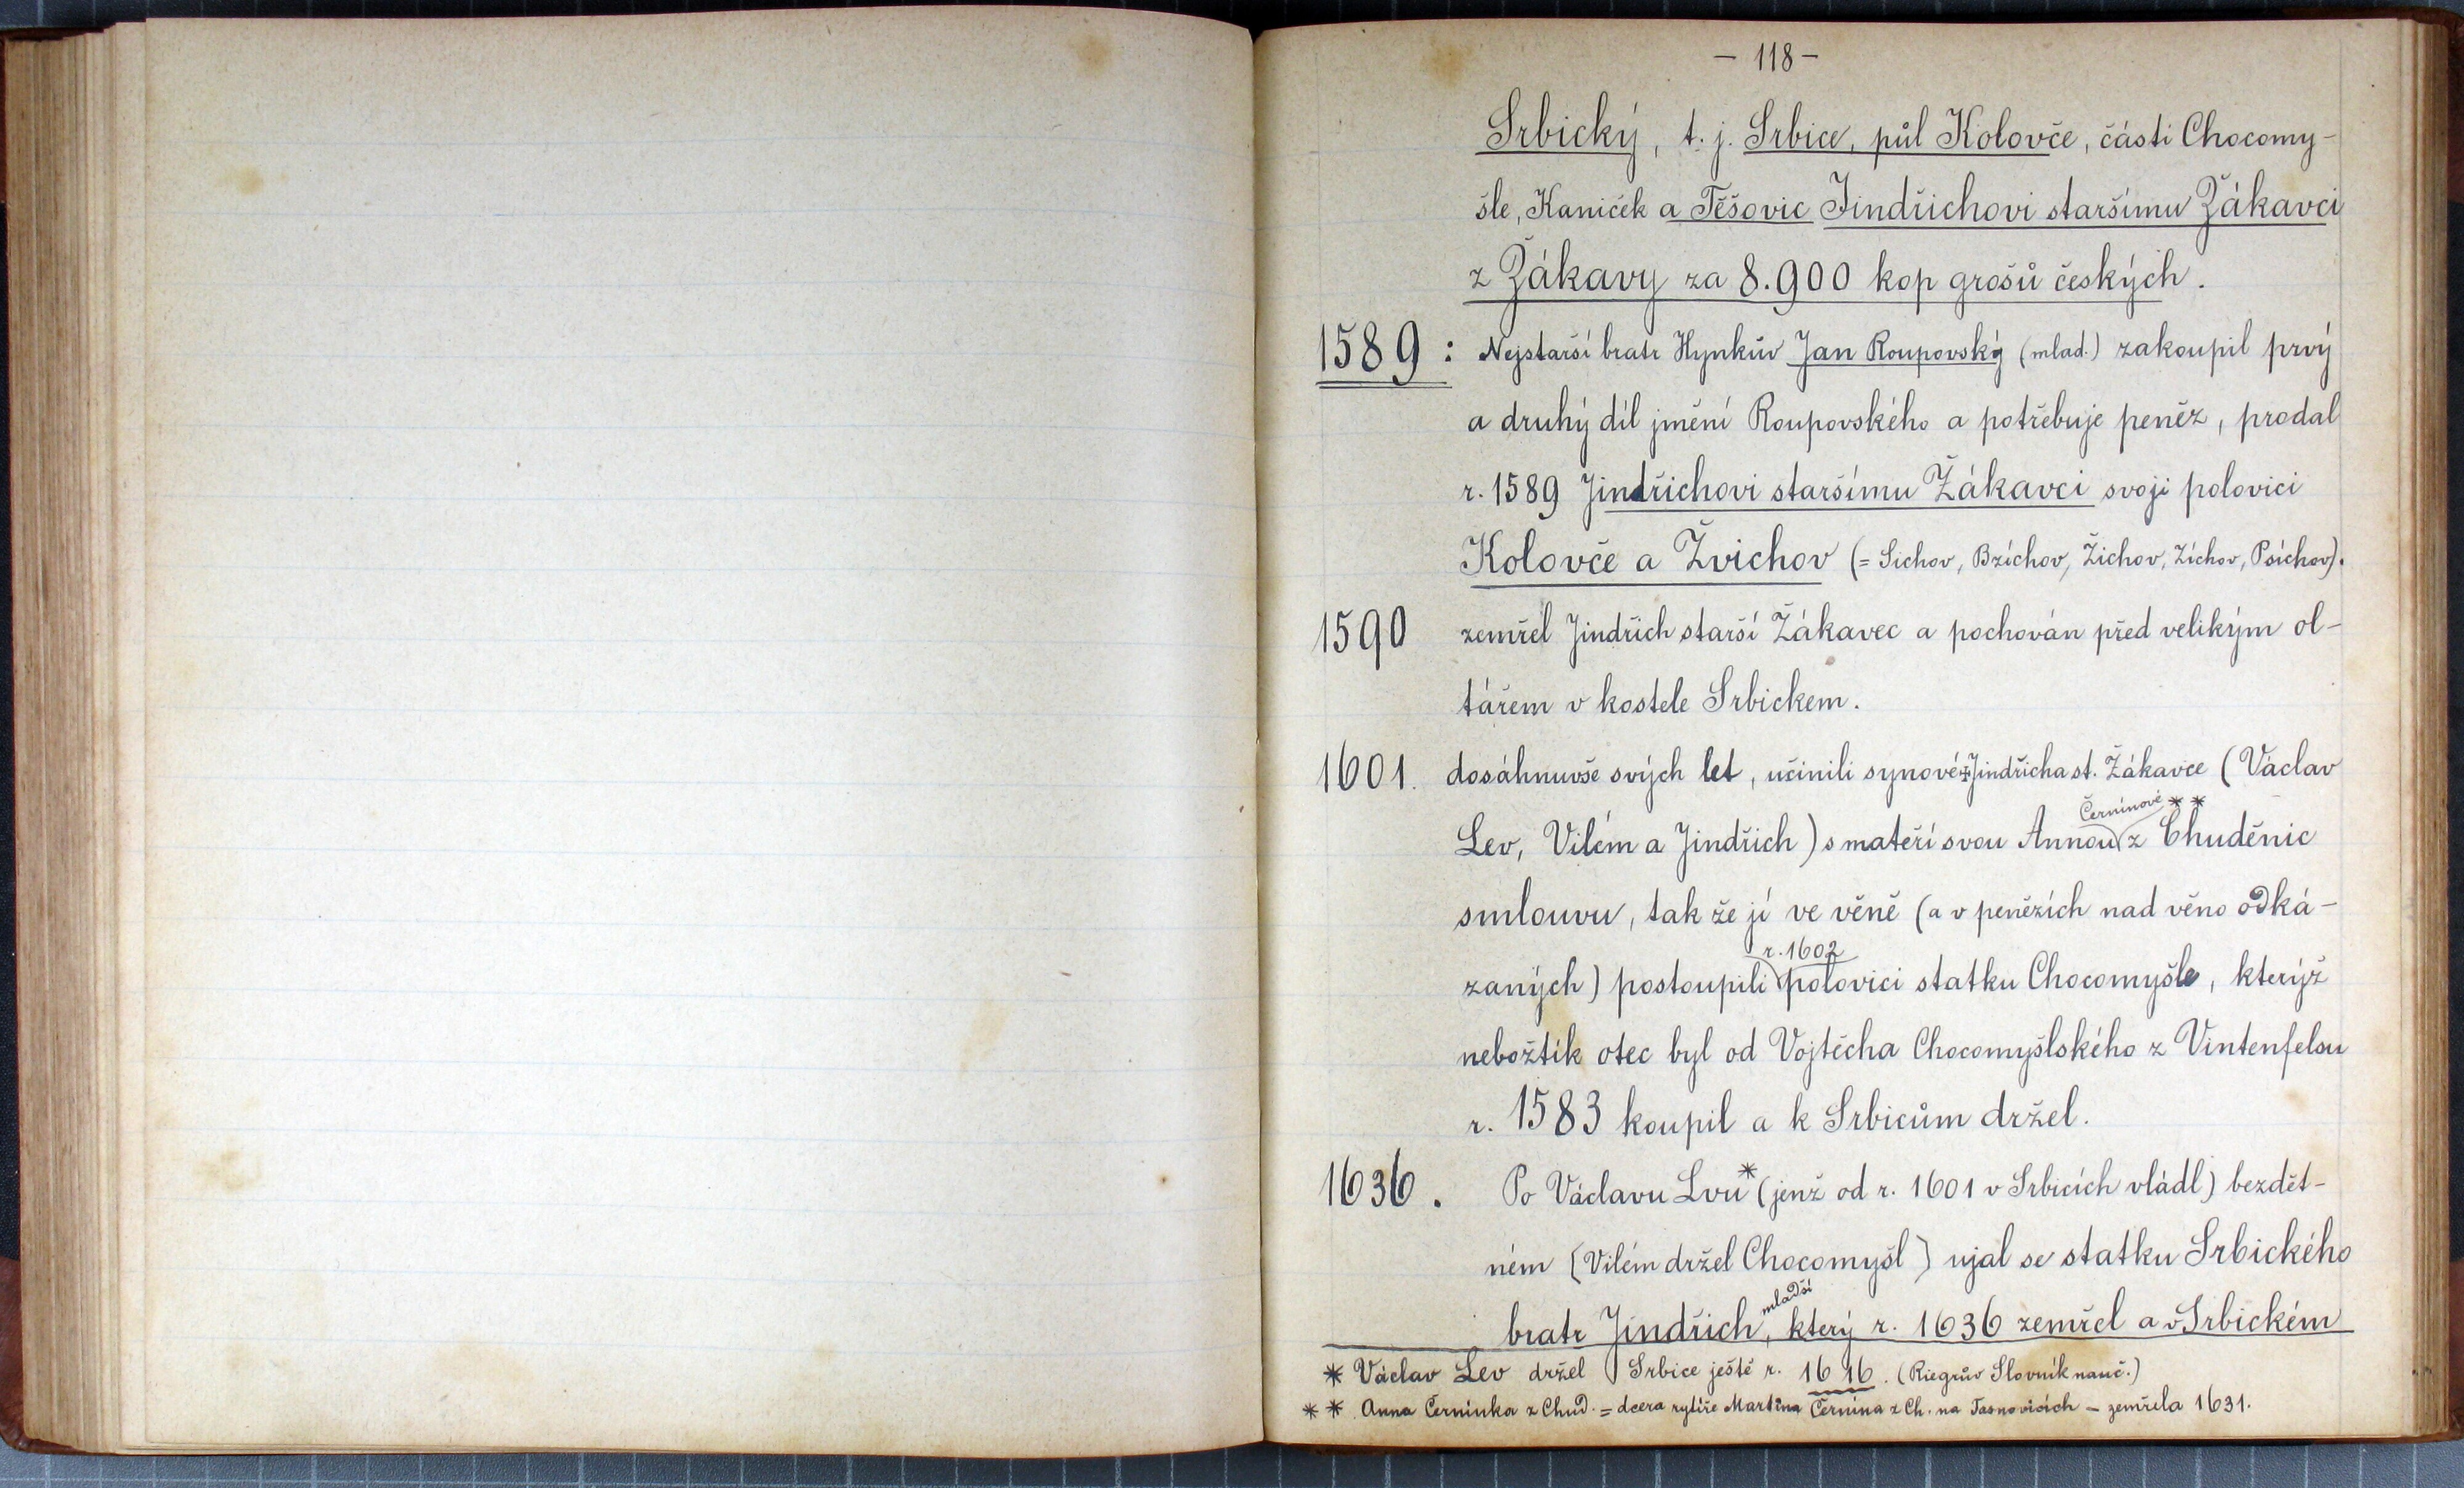 - 118 -
Srbický, t. j. Srbice, půl Kolovče, části Chocomy-
šle, Kaniček a Těšovic Jindřichovi staršímu Žákavci
z Žákavy za 8.900 kop grošů českých.
1589: Nejstarší bratr Hynkův Jan Roupovský (mlad.) zakoupil prvý
a druhý díl jmění Roupovského a potřebuje peněz, prodal
r. 1589 Jindřichovi staršímu Žákavci svoji polovici
Kolovče a Žvichov (= Sichov, Bzíchov, Žichov, Zíchov, Psíchov).
1590 zemřel Jindřich starší Žákavec a pochován před velikým ol-
tářem v kostele Srbickem.
1601. dosáhnuvše svých let, učinili synové ‡ Jindřicha st. Žákavce (Václav
Černínové * *
Lev, Vilém a Jindřich) s mateří svou Annou z Chuděnic
smlouvu, tak že jí ve věně (a v penězích nad věno odká-
r. 1602
zaných) postoupili polovici statku Chocomyšle, kterýž
nebožtík otec byl od Vojtěcha Chocomyšlského z Vintenfelsu
r. 1583 koupil a k Srbicům držel.
1636. Po Václavu Lvu* (jenž od r. 1601 v Srbicích vládl) bezdět-
ném (Vilém držel Chocomyšl) ujal se statku Srbického
mladší
bratr Jindřich, který r. 1636 zemřel a v Srbickém
* Václav Lev držel Srbice ještě r. 1616. (Riegrův Slovník nauč.)
* * Anna Černínka z Chud. = dcera rytíře Martina Černína z Ch. na Tasnovicích - zemřela 1631.